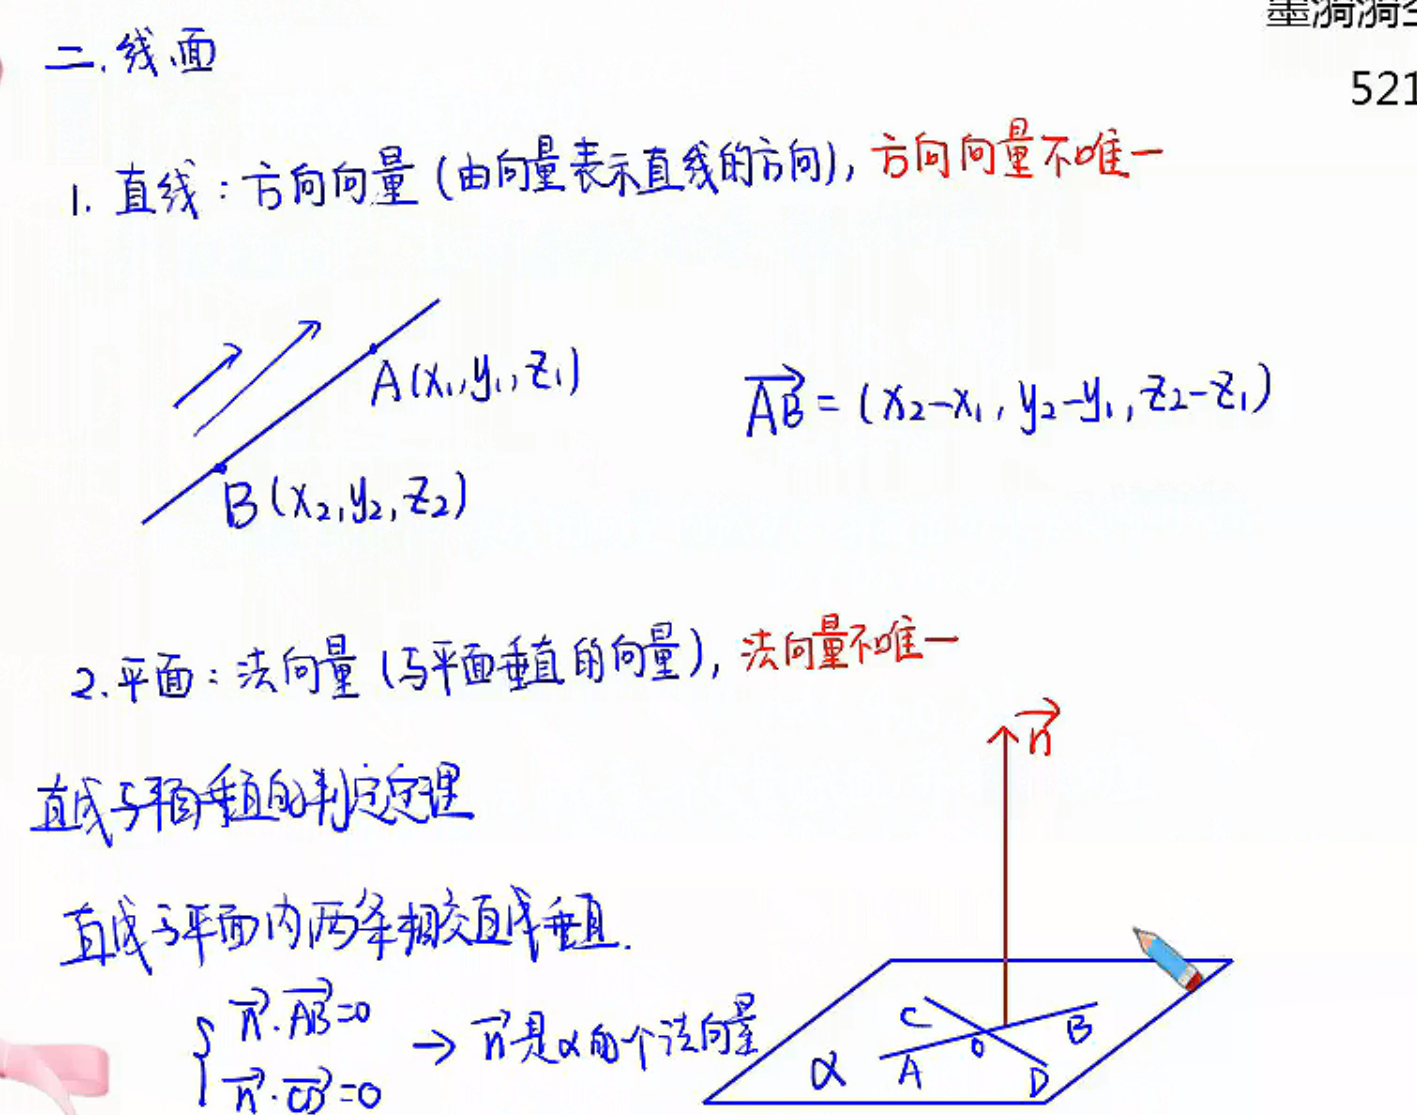 墨漪漪
521
二.线、面
1. 直线：方向向量(由向量表示直线的方向)，方向向量不唯一
A(x₁,y₁,z₁)
B(x₂,y₂,z₂)
$\overrightarrow{AB}=(x_2-x_1, y_2-y_1, z_2-z_1)$
2.平面：法向量(与平面垂直的向量)，法向量不唯一
直线与平面垂直的判定定理
直线与平面内两条相交直线垂直.
$\begin{cases}\vec{n}\cdot\overrightarrow{AB}=0\\ \vec{n}\cdot\overrightarrow{CD}=0\end{cases}$ → $\vec{n}$是α的一个法向量
$\vec{n}$
C
B
O
A
D
α